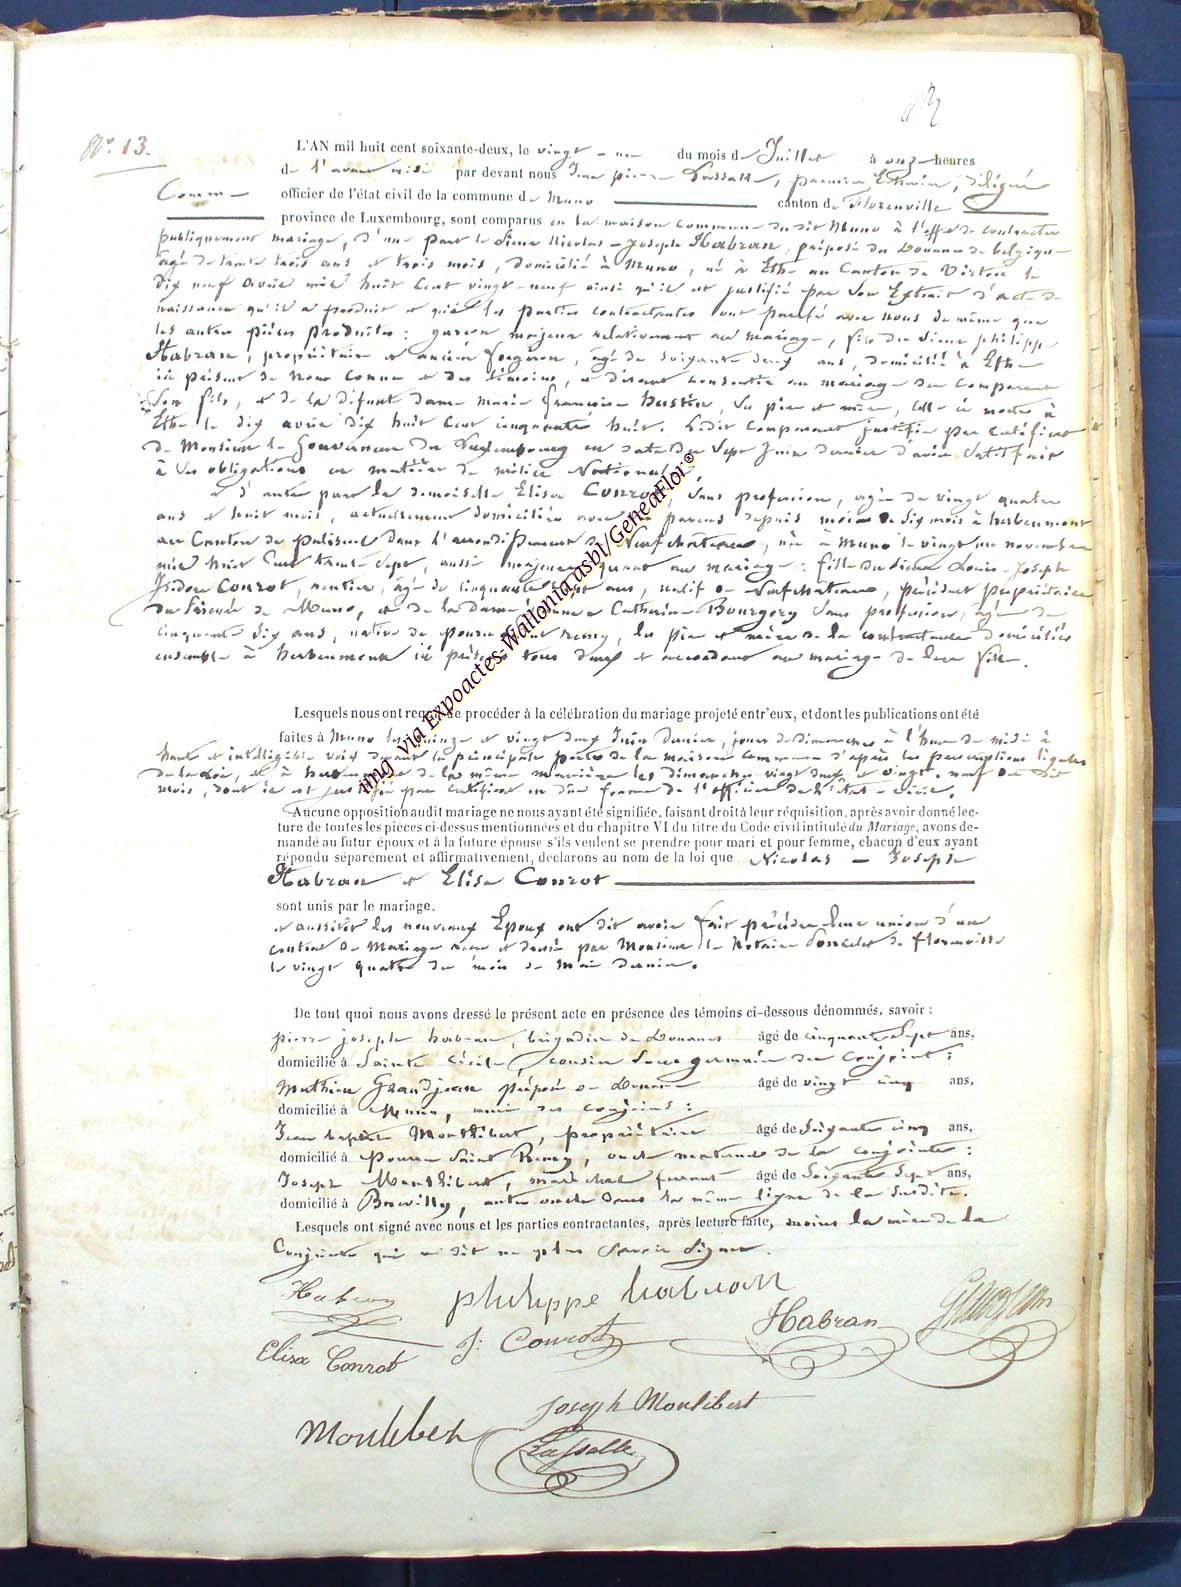 N°. 13.
L'AN mil huit cent soixante-deux, le vingt-un du mois de Juillet à onze heures
de l'avant midi par devant nous Jean pierre Lassalle, premier Echevin, délégué
Comme officier de l'état civil de la commune de Muno canton de Florenville
province de Luxembourg, sont comparus en la maison commune du dit Muno à l'effet de contracter
publiquement mariage, d'une part le Sieur Nicolas-Joseph Habran, préposé des Douanes de belgique
agé de trente trois ans et trois mois, domicilié à Muno, né à Ethe au Canton de Virton le
dix neuf avril mil huit Cent vingt-neuf ainsi qu'il est justifié par son Extrait d'acte de
naissance qu'il a produit et que les parties contractantes ont paraphé avec nous de même que
les autres pièces produites : garçon majeur relativement au mariage, fils du Sieur philippe
Habran, propriétaire et ancien forgeron, agé de soixante deux ans, domicilié à Ethe
ici présent de nous connu et des témoins, et disant consentir au mariage du comparant
son fils, et de la défunte dame marie françoise hustin, ses père et mère, celle ci morte à
Ethe le dix avril dix huit cent cinquante huit. Ledit comparant justifie par certificat
de Monsieur le Gouverneur du Luxembourg en date du sept Juin dernier d'avoir satisfait
à ses obligations en matière de milice Nationale,
et d'autre part la demoiselle Elisa Conrot, sans profession, agée de vingt quatre
ans et huit mois, actuellement domiciliée avec ses parens depuis moins de six mois à herbeumont
au Canton de paliseul dans l'arrondissement de Neufchateau, née à Muno le vingt un novembre
mil huit Cent trente sept, aussi majeure quant au mariage : fille du Sieur Louis-Joseph
Isidore Conrot, rentier, agé de cinquante sept ans, natif de Neufchateau, précédent propriétaire
du de Muno, et de la Dame Catherine Bourgery sans profession, agée de
cinquante six ans, native de pourru saint remy, les père et mère de la contractante domiciliés
ensemble à herbeumont ici présens tous deux et accordant au mariage de leur fille.
Lesquels nous ont requis de procéder à la célébration du mariage projeté entr'eux, et dont les publications ont été
faites à Muno les quinze et vingt deux Juin dernier, jours de dimanches à l'heure de midi à
haute et intelligible voix devant la principale porte de la maison commune d'après les prescriptions légales
de la Loi, et à herbeumont de la même manière les dimanches vingt deux et vingt-neuf du dit
mois, dont il est justifié par certificat en due forme de l'officier de l'état-civil.
Aucune opposition audit mariage ne nous ayant été signifiée, faisant droit à leur réquisition, après avoir donné lec-
ture de toutes les pièces ci-dessus mentionnées et du chapitre VI du titre du Code civil intitulé du Mariage, avons de-
mandé au futur époux et à la future épouse s'ils veulent se prendre pour mari et pour femme, chacun d'eux ayant
répondu séparément et affirmativement, déclarons au nom de la loi que Nicolas-Joseph
Habran et Elisa Conrot
sont unis par le mariage.
et aussitôt les nouveaux Epoux ont dit avoir fait précéder leur union d'un
contrat de Mariage reçu et dressé par Monsieur le Notaire Poncelet de florenville
le vingt quatre du mois de Mai dernier.
De tout quoi nous avons dressé le présent acte en présence des témoins ci-dessous dénommés, savoir :
pierre joseph habran, brigadier de Douanes âgé de cinquante Sept ans,
domicilié à Sainte Cécile, cousin sous germain du conjoint ;
Mathieu Grandjean préposé de Douane âgé de vingt cinq ans,
domicilié à Muno, ami des conjoins :
Jean baptiste Monthibert, propriétaire âgé de Soixante cinq ans,
domicilié à pourru Saint Remy, oncle maternel de la conjointe :
Joseph Monthibert, maréchal ferrant âgé de Soixante Sept ans,
domicilié à Brevilly, autre oncle dans la même ligne de la susdite.
Lesquels ont signé avec nous et les parties contractantes, après lecture faite, moins la mère de la
Conjointe qui a dit ne plus savoir signer.
Habran philippe habran
Habran Grandjean
Elisa Conrot J: Conrot
Joseph Monlibert
Lassalle
img via Expoactes-Wallonia asbl/GeneaFlor©